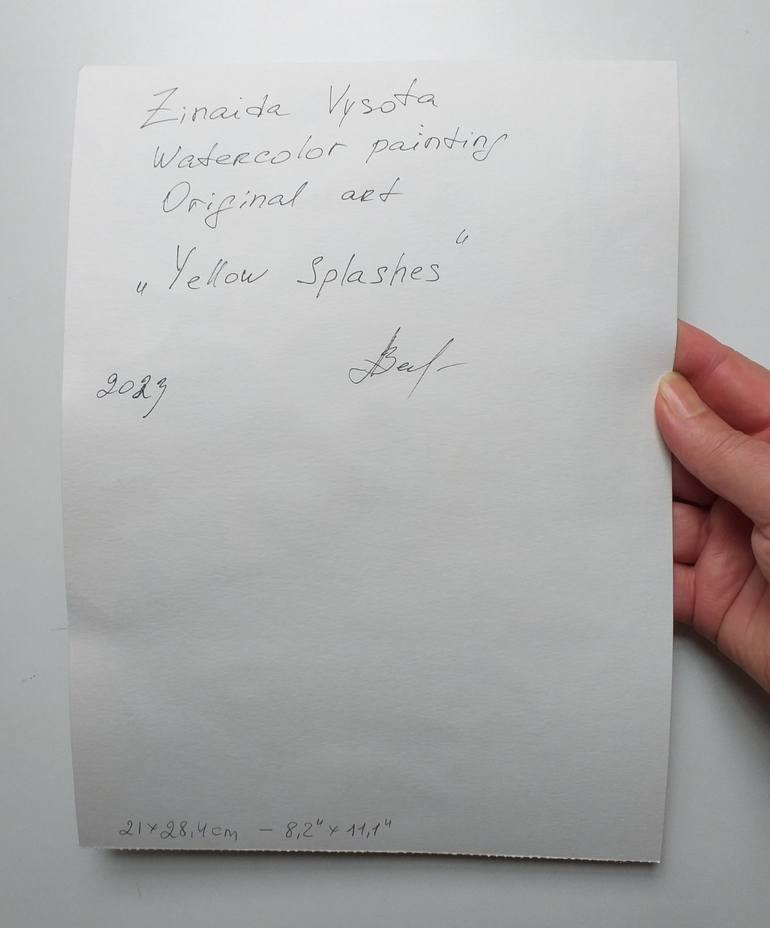 Zinaida Vysota
Watercolor painting
Original art
„Yellow Splashes"
2023
21×28,4 cm – 8,2" × 11,1"